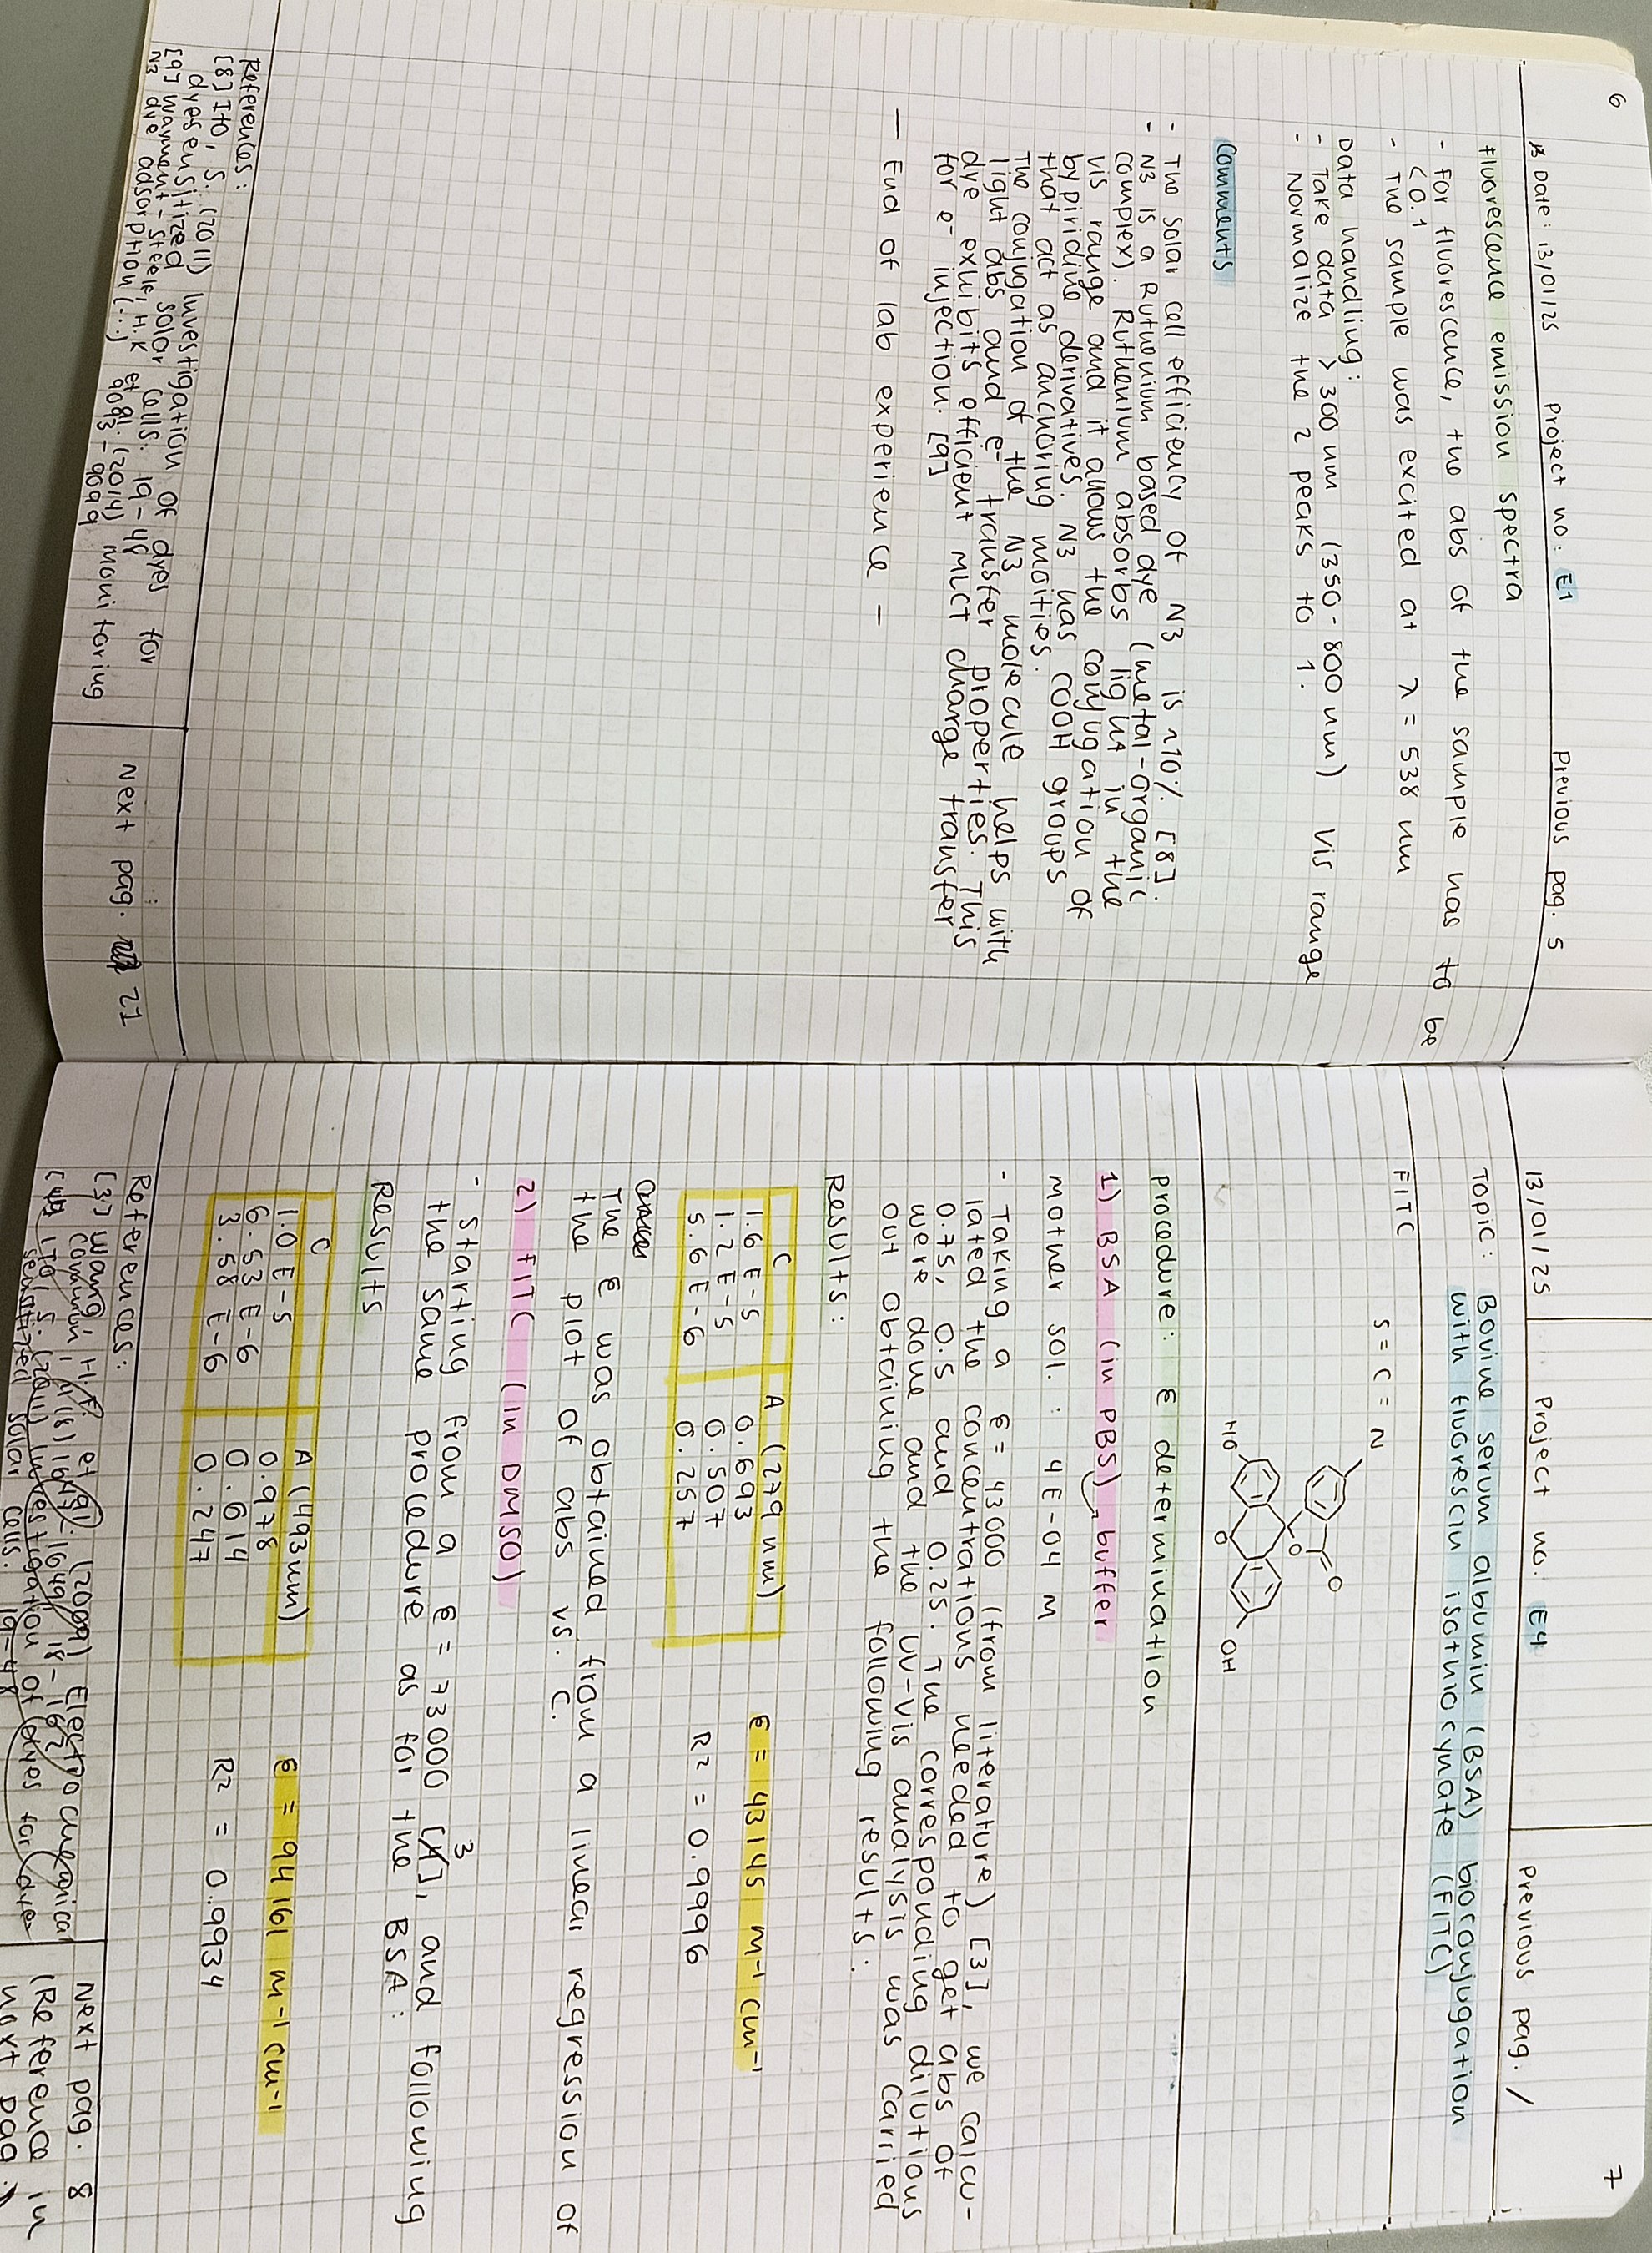 6
Date: 13/01/25 Project no: E1 Previous pag. 5
Fluorescence emission spectra
- For fluorescence, the abs of the sample has to be
<0.1
- The sample was excited at λ = 538 nm
Data handling:
- Take data > 300 nm (350-800 nm) Vis range
- Normalize the 2 peaks to 1.
Comments
- The solar cell efficiency of N3 is ~10%. [8].
- N3 is a Ruthenium based dye (metal-organic
complex). Ruthenium absorbs light in the
vis range and it allows the conjugation of
bypiridine derivatives. N3 has COOH groups
that act as anchoring moities.
The conjugation of the N3 molecule helps with
light abs and e⁻ transfer properties. This
dye exhibits efficient MLCT charge transfer
for e⁻ injection. [9]
— End of lab experience —
References:
[8] Ito, S. (2011) Investigation of dyes for
dyesensitized solar cells: 19-48
[9] Wayment-Steele, H.K et al. (2014) Monitoring
N3 dye adsorption (...) 9093-9099
Next pag. 21
7
13/01/25 Project no: E4 Previous pag. /
Topic: Bovine serum albumin (BSA) bioconjugation
with fluorescin isothiocynate (FITC)
FITC
S=C=N
O
O
HO O OH
Procedure: ε determination
1) BSA (in PBS) → buffer
Mother sol.: 4E-04 M
- Taking a ε = 43000 (from literature) [3], we calcu-
lated the concentrations needed to get abs of
0.75, 0.5 and 0.25. The corresponding dilutions
were done and the UV-Vis analysis was carried
out obtaining the following results:
Results:
C A (279 nm)
1.6 E-5 0.693
1.2 E-5 0.507
5.6 E-6 0.257
ε = 43145 M-1 cm-1
R2 = 0.9996
The ε was obtained from a linear regression of
the plot of abs vs. C.
2) FITC (in DMSO)
- Starting from a ε = 73000 [3], and following
the same procedure as for the BSA:
Results
C A (493nm)
1.0 E-5 0.978
6.53 E-6 0.614
3.58 E-6 0.247
ε = 94161 M-1 cm-1
R2 = 0.9934
References:
[3] Wang, H.F. et al. (2009) Electrochemical
Commun, 11(8) 1647, 1649, 18-162
Ito, S. (2011) Investigation of dyes for dye
sensitized solar cells. 19-48
Next pag. 8
(Reference in
next pag.)